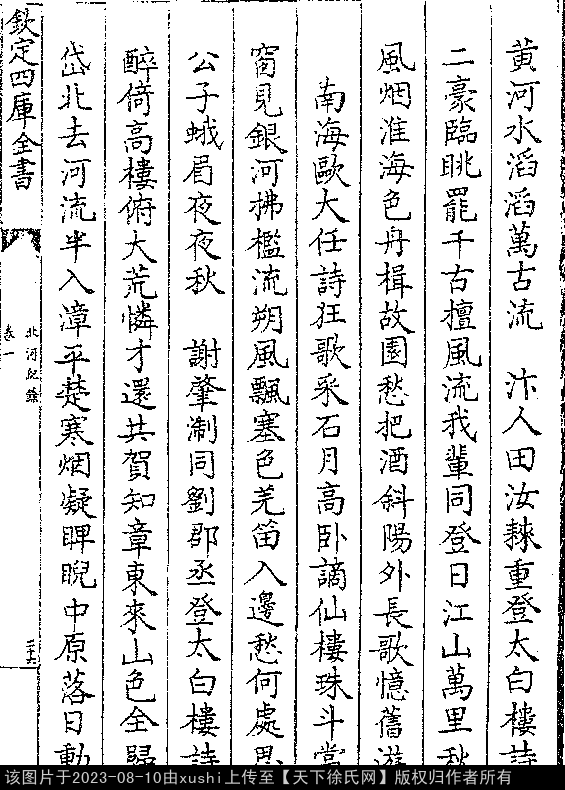 黄河水滔滔萬古流　汴人田汝𣗥重登太白樓詩
二豪臨眺罷千古擅風流我輩同登日江山萬里秋
風烟淮海色舟楫故園愁把酒斜陽外長歌憶舊遊
南海歐大任詩狂歌采石月高卧謫仙樓珠斗當
窗見銀河拂檻流朔風飄塞色羌笛入邊愁何處思
公子蛾眉夜夜秋　謝肇淛同劉郡丞登太白樓詩
醉倚高樓俯大荒憐才還共賀知章東來山色全歸
岱北去河流半入漳平楚寒烟凝睥睨中原落日動
欽定四庫全書
北河紀餘
卷一
三十六
该图片于2023-08-10由xushi上传至【天下徐氏网】版权归作者所有